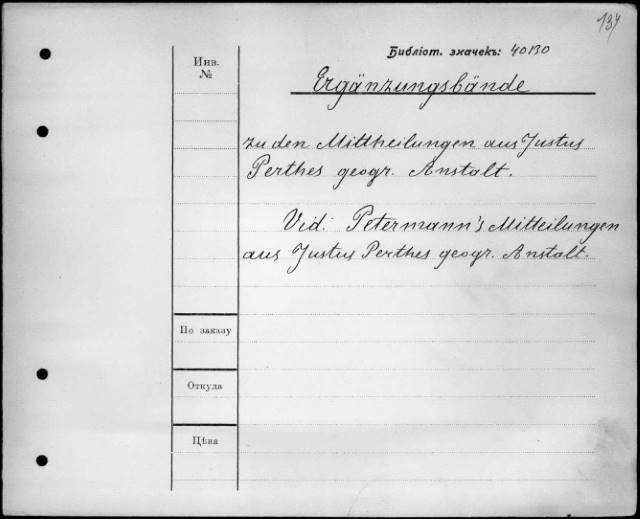 134
Библіот. значекъ: 40130
Инв.
№
Ergänzungsbände
zu den Mittheilungen aus Justus
Perthes geogr. Anstalt.
Vid: Petermann's Mitteilungen
aus Justus Perthes geogr. Anstalt.
По заказу
Откуда
Цѣна